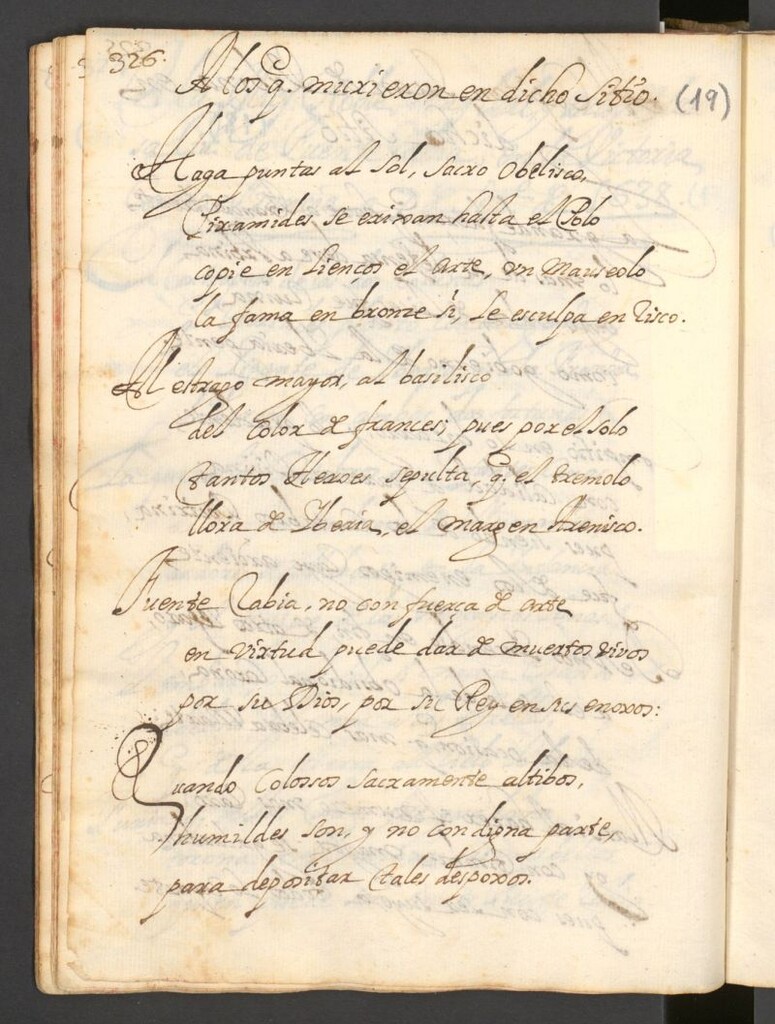 326.
A los q. murieron en dicho sitio. (19)
Haga puntas al sol, sacro obelisco,
Piramides se exixan hasta el Polo
copie en Lienços el arte, un Mauseolo
la fama en bronze si, se esculpa en risco.
Al estrago mayor, al basilisco
del color de frances; pues por el solo
tantos Heroes sepulta, q. el tremolo
llora de Iberia, el margen Arenisco.
Fuente Rabia, no con fuerça de arte
en virtud puede dar de muertos vivos
por su Dios, por su Rey en sus enoxos:
Quando Colossos sacramente altibos,
humildes son, y no condigna parte,
para depositar tales desposos.